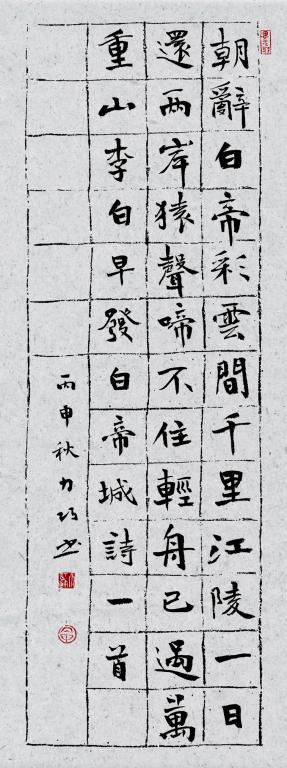 朝辭白帝彩雲間千里江陵一日
還两岸猿聲啼不住輕舟已過萬
重山李白早發白帝城詩一首
丙申秋力